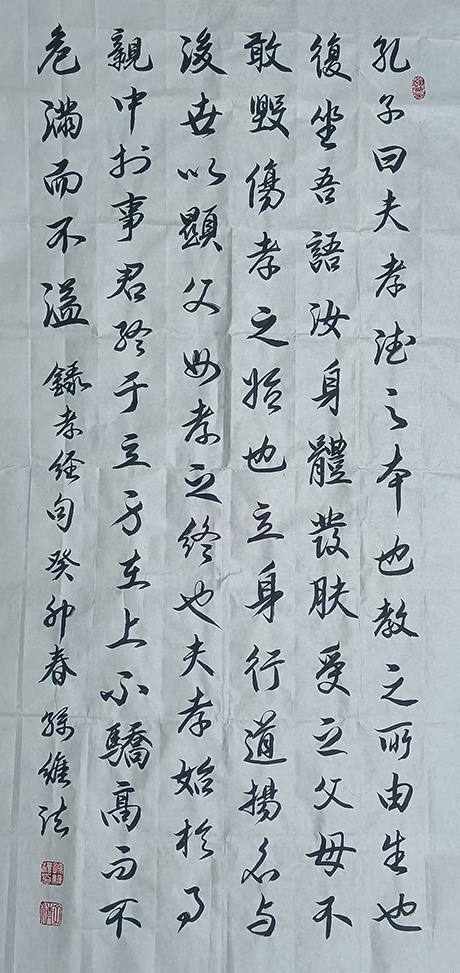 孔子曰夫孝德之本也教之所由生也
復坐吾語汝身體發肤受之父母不
敢毀傷孝之始也立身行道揚名与
後世以顯父母孝之終也夫孝始於事
親中於事君終于立身在上不驕高而不
危滿而不溢錄孝经句癸卯春孫維法